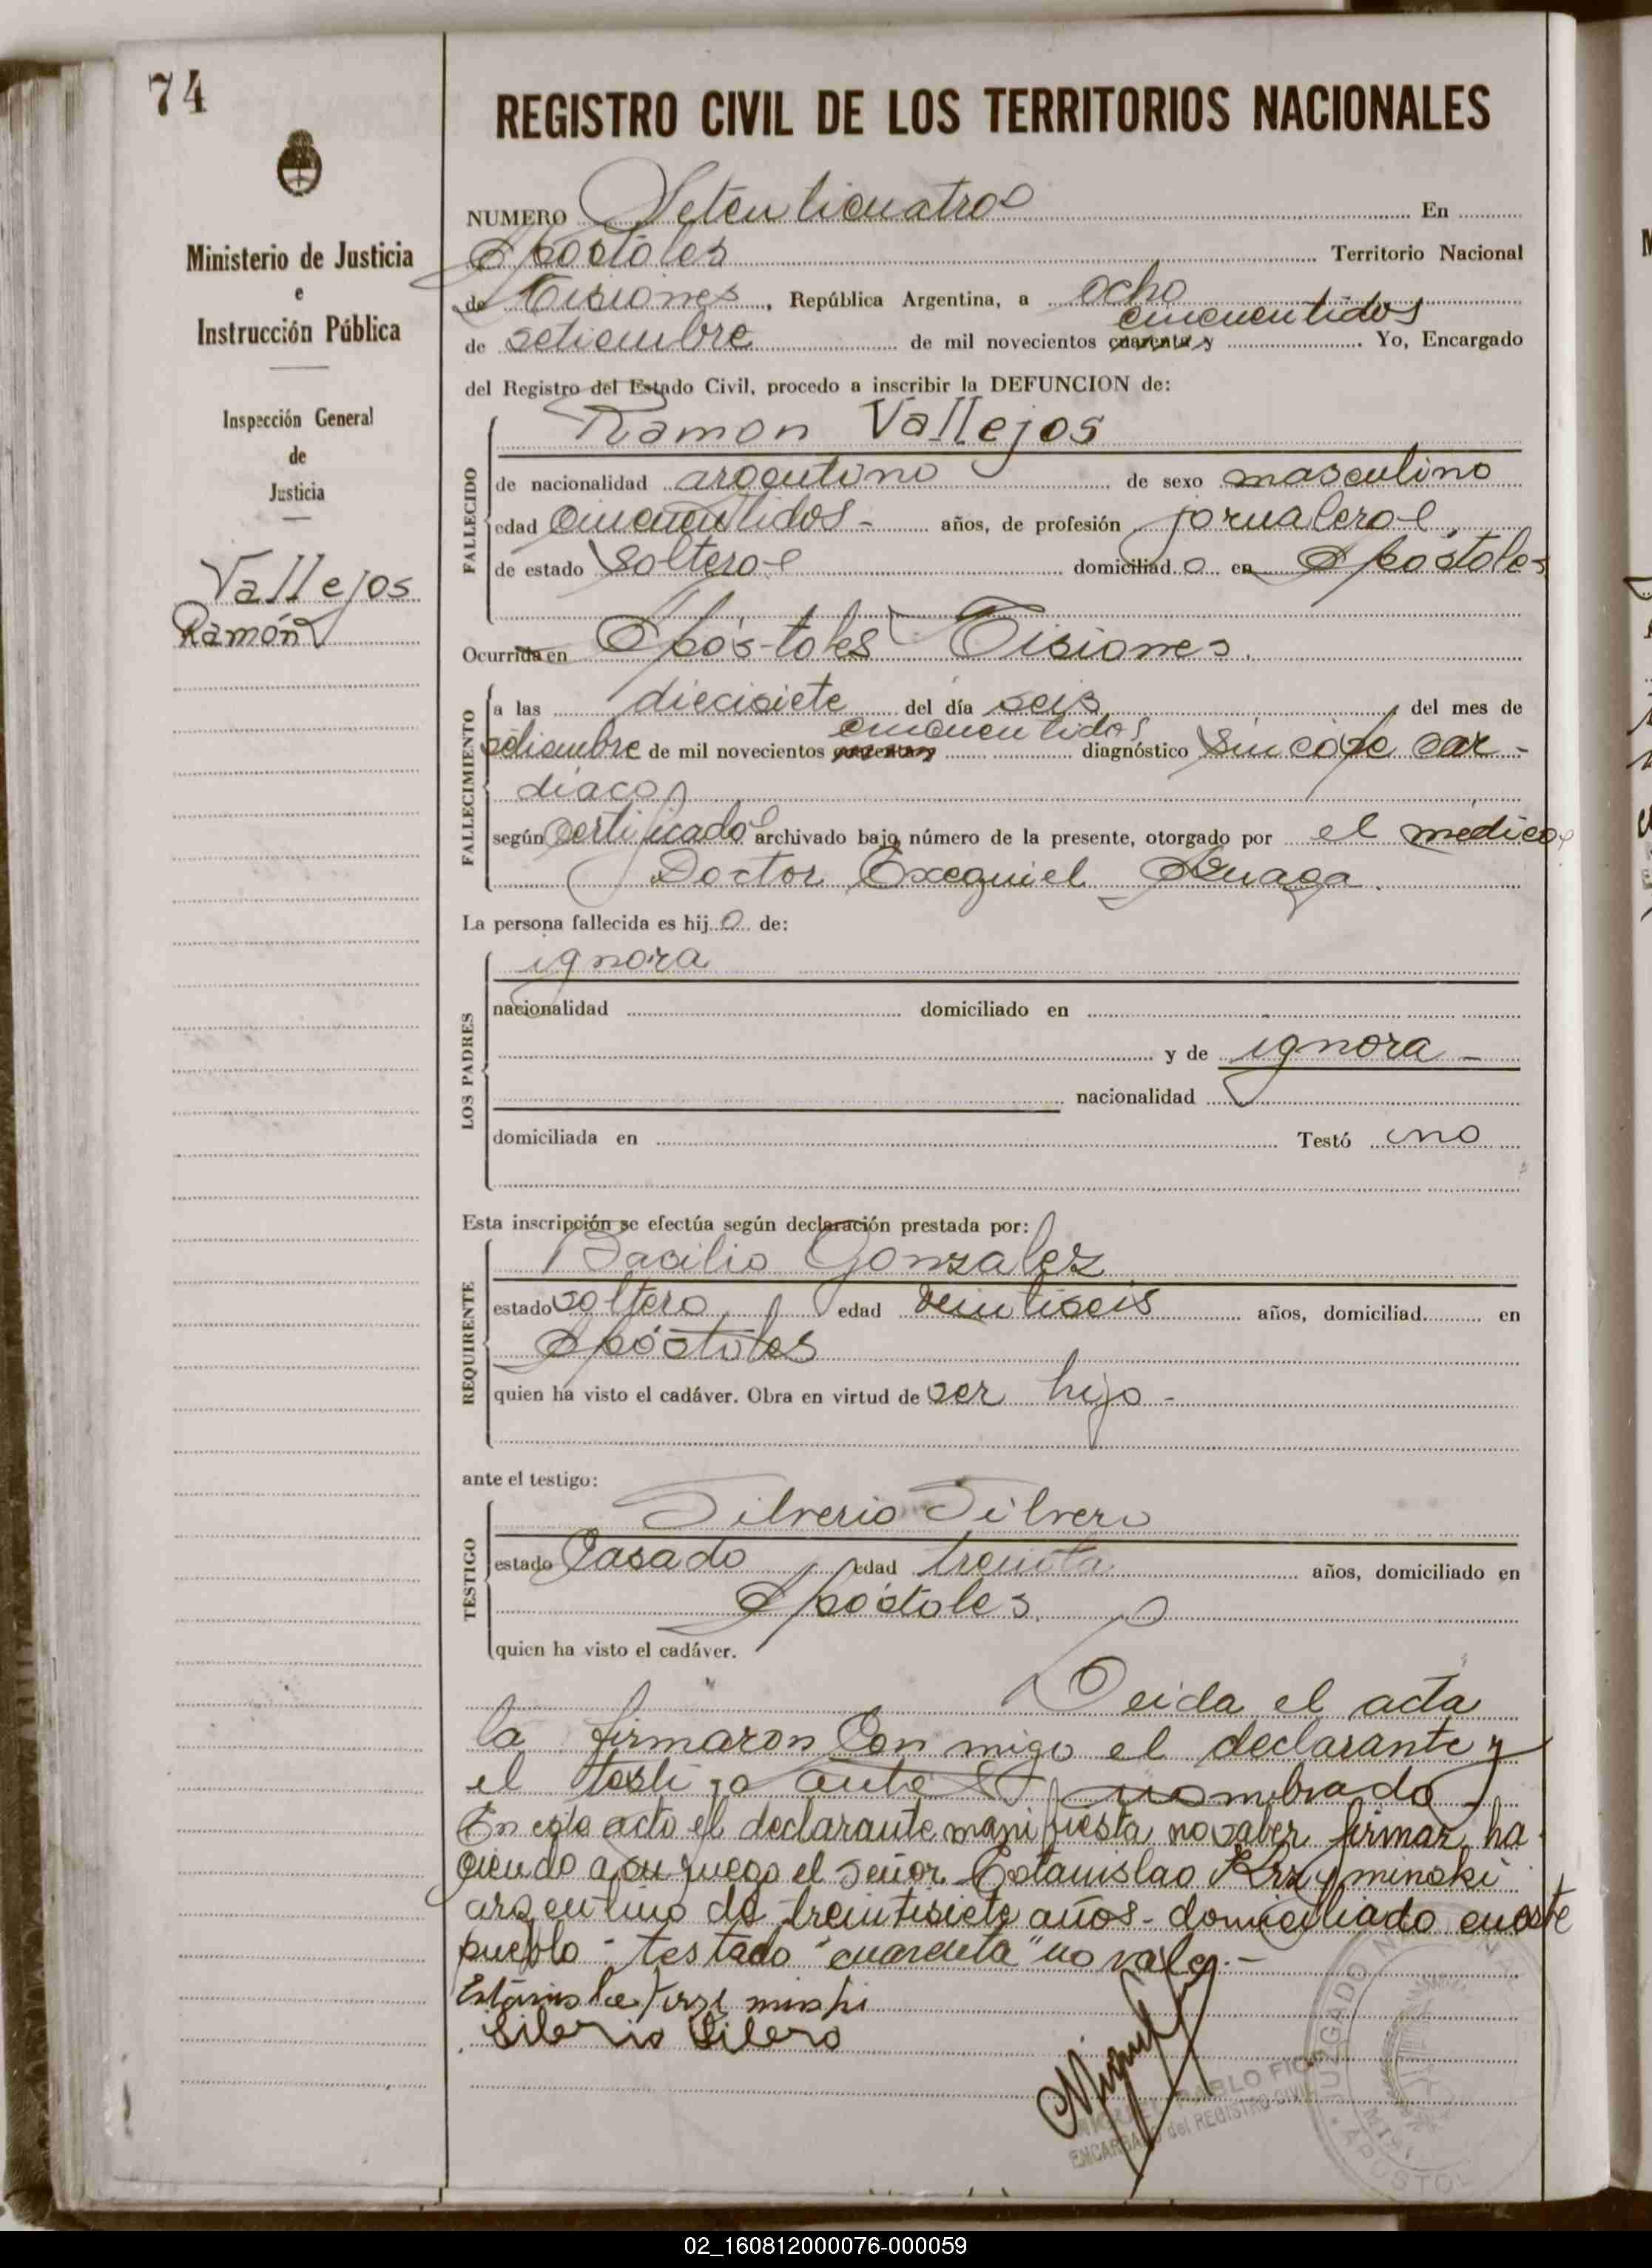 74
REGISTRO CIVIL DE LOS TERRITORIOS NACIONALES
Ministerio de Justicia
e
Instrucción Pública
Inspección General
de
Justicia
Vallejos
Ramón
NUMERO Setenticuatro En
Apostoles Territorio Nacional
de Misiones, República Argentina, a ocho
cincuentidos
de setiembre de mil novecientos cuarenta y Yo, Encargado
del Registro del Estado Civil, procedo a inscribir la DEFUNCION de:
FALLECIDO
Ramon Vallejos
de nacionalidad argentino de sexo masculino
edad cincuentidos - años, de profesión jornalero
de estado soltero domiciliado en Apóstoles
Ocurrida en Apóstoles Misiones.
FALLECIMIENTO
a las diecisiete del día seis del mes de
cincuentidos
setiembre de mil novecientos cuarenta y diagnóstico sincope car-
diaco
según certificado archivado bajo número de la presente, otorgado por el médico
Doctor Exequiel
La persona fallecida es hijo de:
LOS PADRES
ignora
nacionalidad domiciliado en
y de ignora -
nacionalidad
domiciliada en Testó no
Esta inscripción se efectúa según declaración prestada por:
REQUIRENTE
Bacilio Gonzalez
estado soltero edad veintiseis años, domiciliad en
Apóstoles
quien ha visto el cadáver. Obra en virtud de ser hijo -
ante el testigo:
TESTIGO
Silverio Silvero
estado Casado edad treinta años, domiciliado en
Apóstoles.
quien ha visto el cadáver.
Leida el acta
la firmaron con migo el declarante y
el testigo ante nombrado
En este acto el declarante manifiesta no saber firmar ha
ciendo a su ruego el señor Estanislao Krzyminski
argentino de treintisiete años - domiciliado en este
pueblo - testado "cuarenta" no vale. -
Silverio Silvero
PABLO
ENCARGADO del REGISTRO CIVIL
JUZGADO
02_160812000076-000059